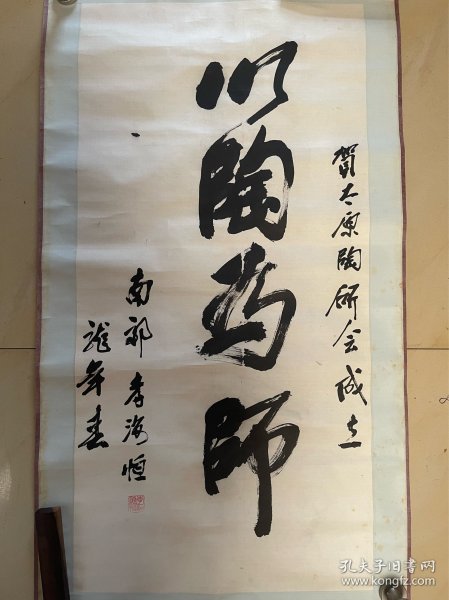 贺太原陶研会成立
以陶为師
南郭 李海恒
龍年春
孔夫子旧书网
www.kongfz.com